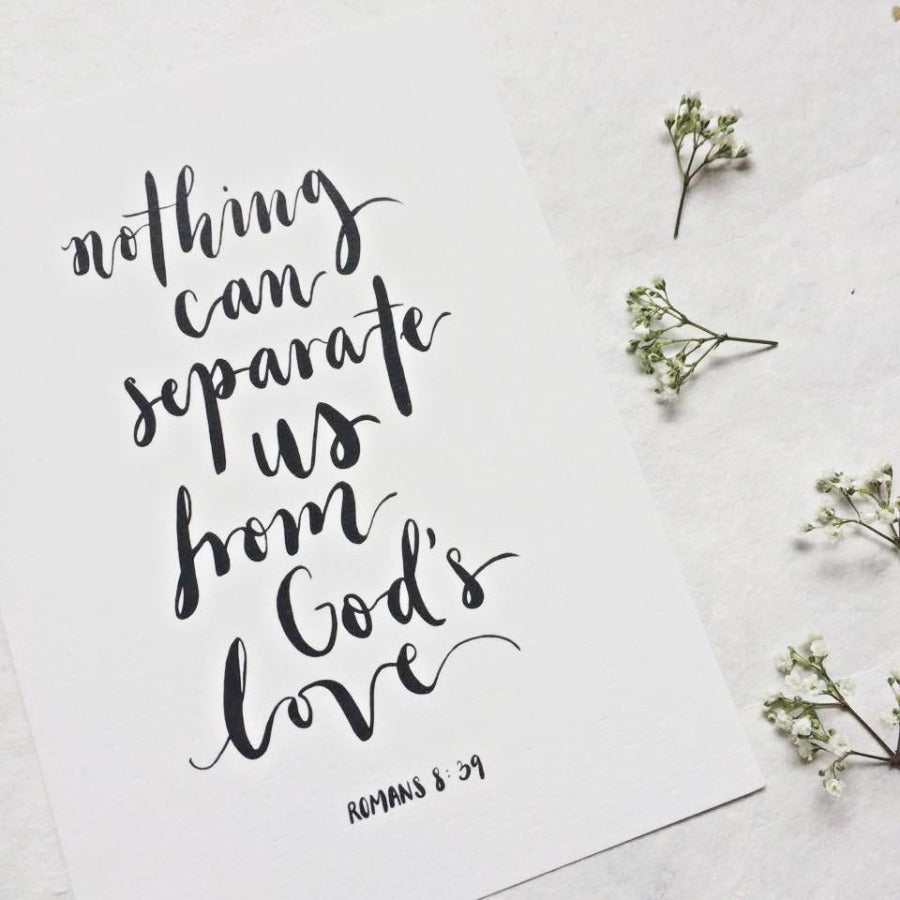 nothing
can
separate
us
from
God's
love
ROMANS 8:39